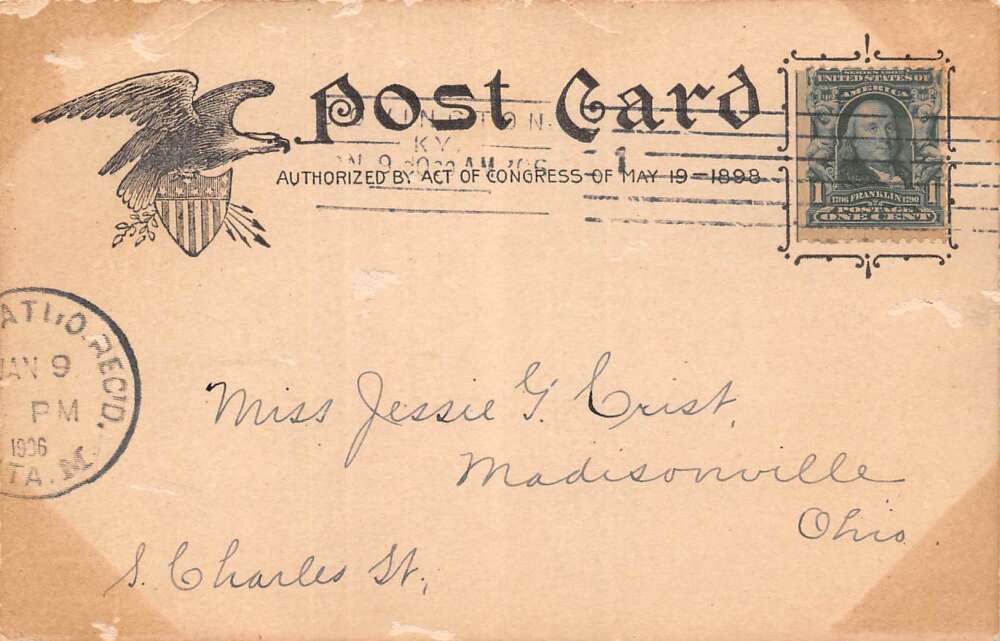 Post Card
NGTON
KY.
9 AM '06 1
AUTHORIZED BY ACT OF CONGRESS OF MAY 19-1898
SERIES 1902
UNITED STATES OF
AMERICA
1 1
1706 FRANKLIN 1790
POSTAGE
ONE CENT
ATI, O. REC'D.
JAN 9
PM
1906
STA. M
Miss Jessie G. Crist,
Madisonville
Ohio
S. Charles St,